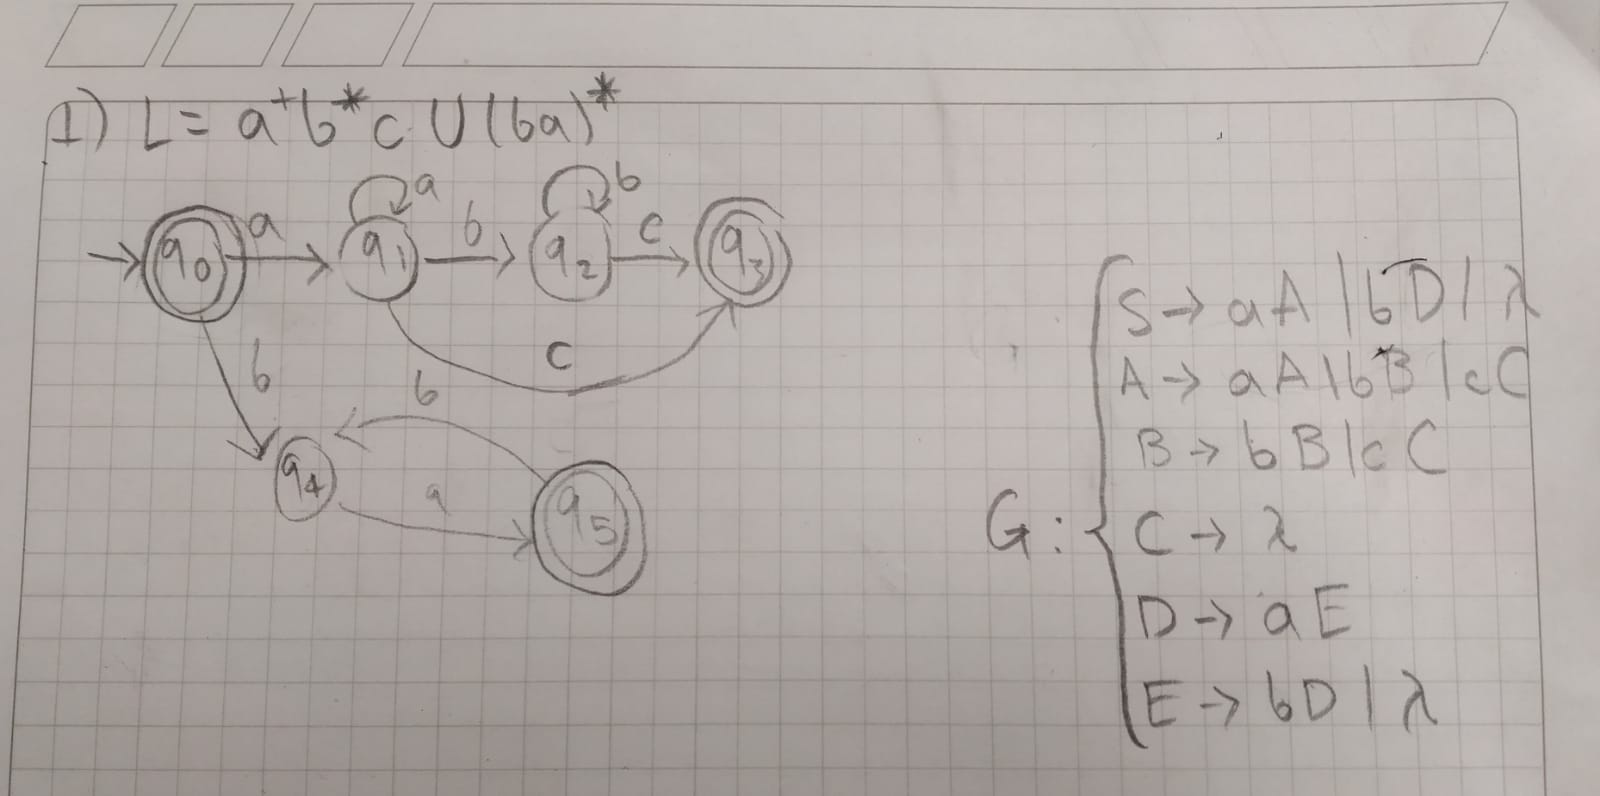 1) L = a⁺b*c ∪ (ba)*
a b
q₀ a q₁ b q₂ c q₃
c
b b
q₄ a q₅
G:
S → aA | bD | λ
A → aA | bB | cC
B → bB | cC
C → λ
D → aE
E → bD | λ